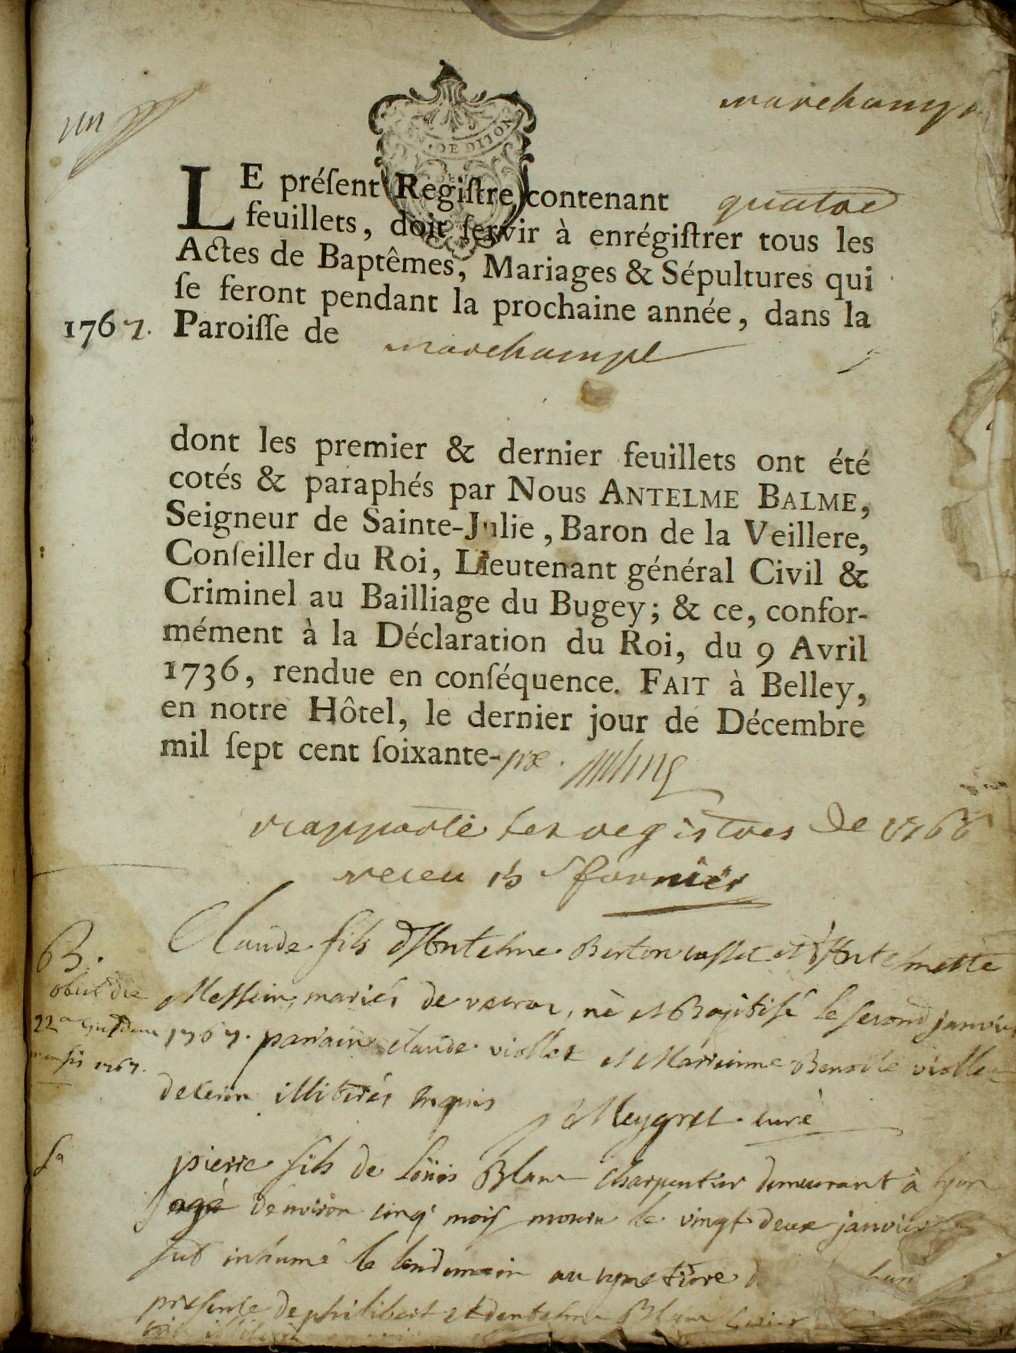 un
marchamp
DE DIJON
LE préſent Regiſtre contenant quatre
feuillets, doit ſervir à enrégiſtrer tous les
Actes de Baptêmes, Mariages & Sépultures qui
ſe feront pendant la prochaine année, dans la
1767. Paroiſſe de marchampt
dont les premier & dernier feuillets ont été
cotés & paraphés par Nous ANTELME BALME,
Seigneur de Sainte-Julie, Baron de la Veillere,
Conſeiller du Roi, Lieutenant général Civil &
Criminel au Bailliage du Bugey; & ce, confor-
mément à la Déclaration du Roi, du 9 Avril
1736, rendue en conſéquence. FAIT à Belley,
en notre Hôtel, le dernier jour de Décembre
mil ſept cent ſoixante-
rapporté les registres de 1766
receu 15 s fornier
B. Claude fils d'Antelme Berton et d'Antelmette
obiit die
Messein mariés de né et Baptisé le second janvier
22a
1767. parrain Claude viollet et Marienne viollet
mensis 1767.
illiterés requis Meygret curé
Sa pierre fils de Loüis Blanc Charpentier demeurant à lyon
agé denviron cinq mois mouru le vingt deux janvier
fut inhumé le lendemain au cymetiere
presence de philibert et dantelme Blanc